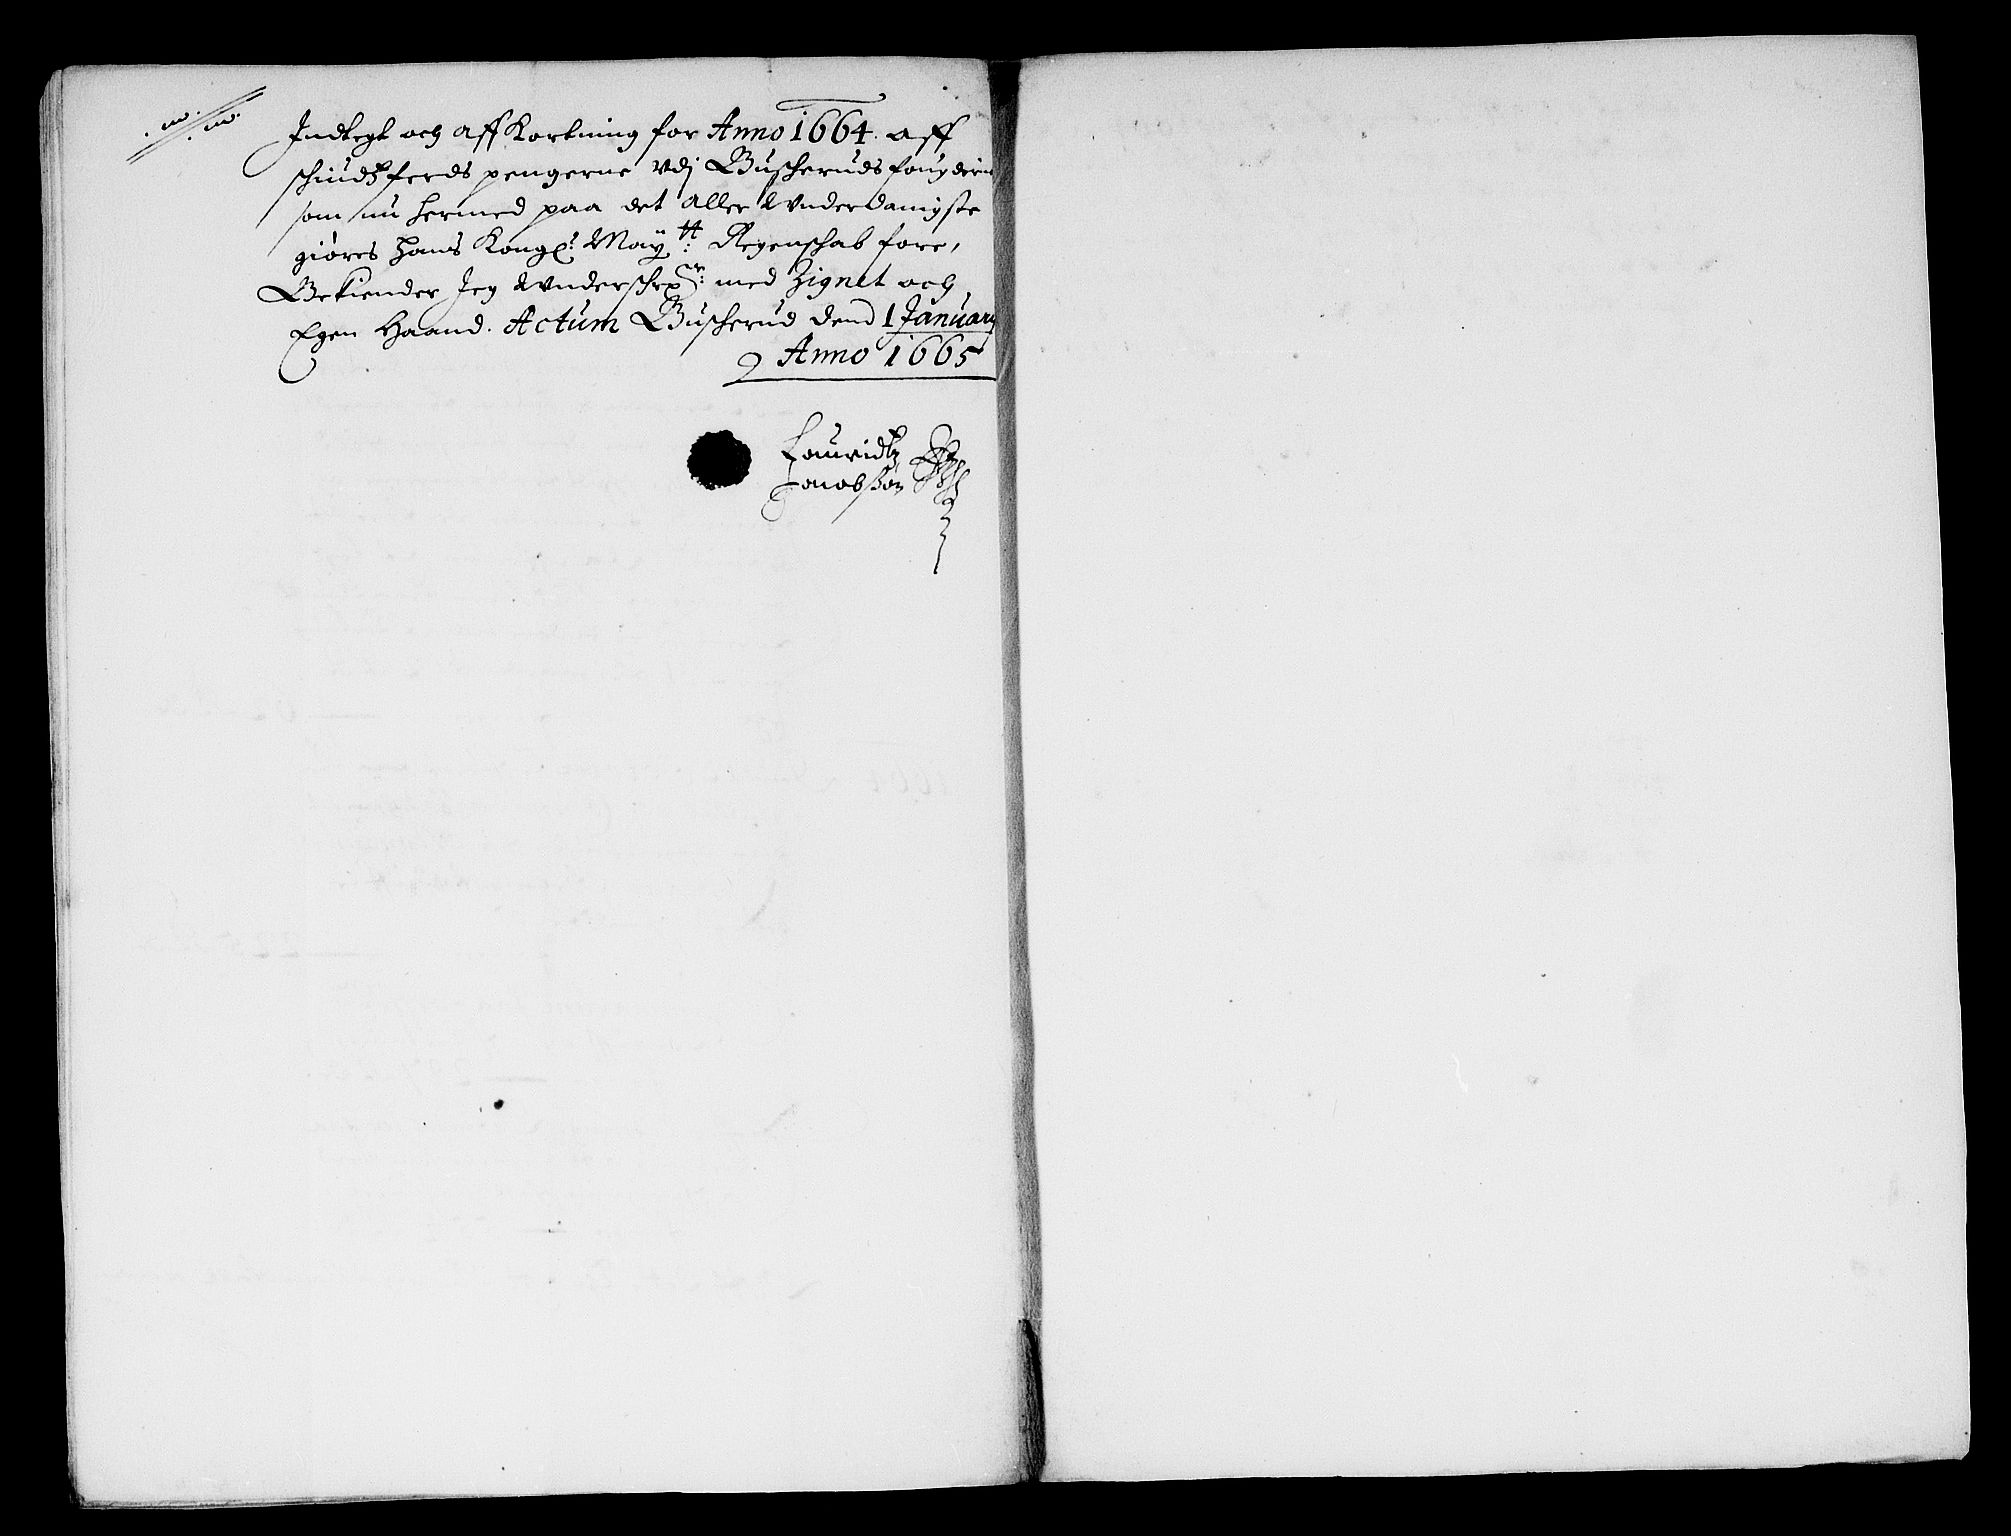 Indtegt och affKortning for Anno 1664. aff
schiudtzferds pengerne vdj Buscheruds fougderie
som nu hermed paa det aller Wnderdanigste
giöres Hans Kongl: May:tt Regenschab fore,
Bekiender Jeg Wnderschrefr: med Zignet och
Egen Haand. Actum Buscherud dend 1 January
Anno 1665
Lauridtz
Jacobsøn